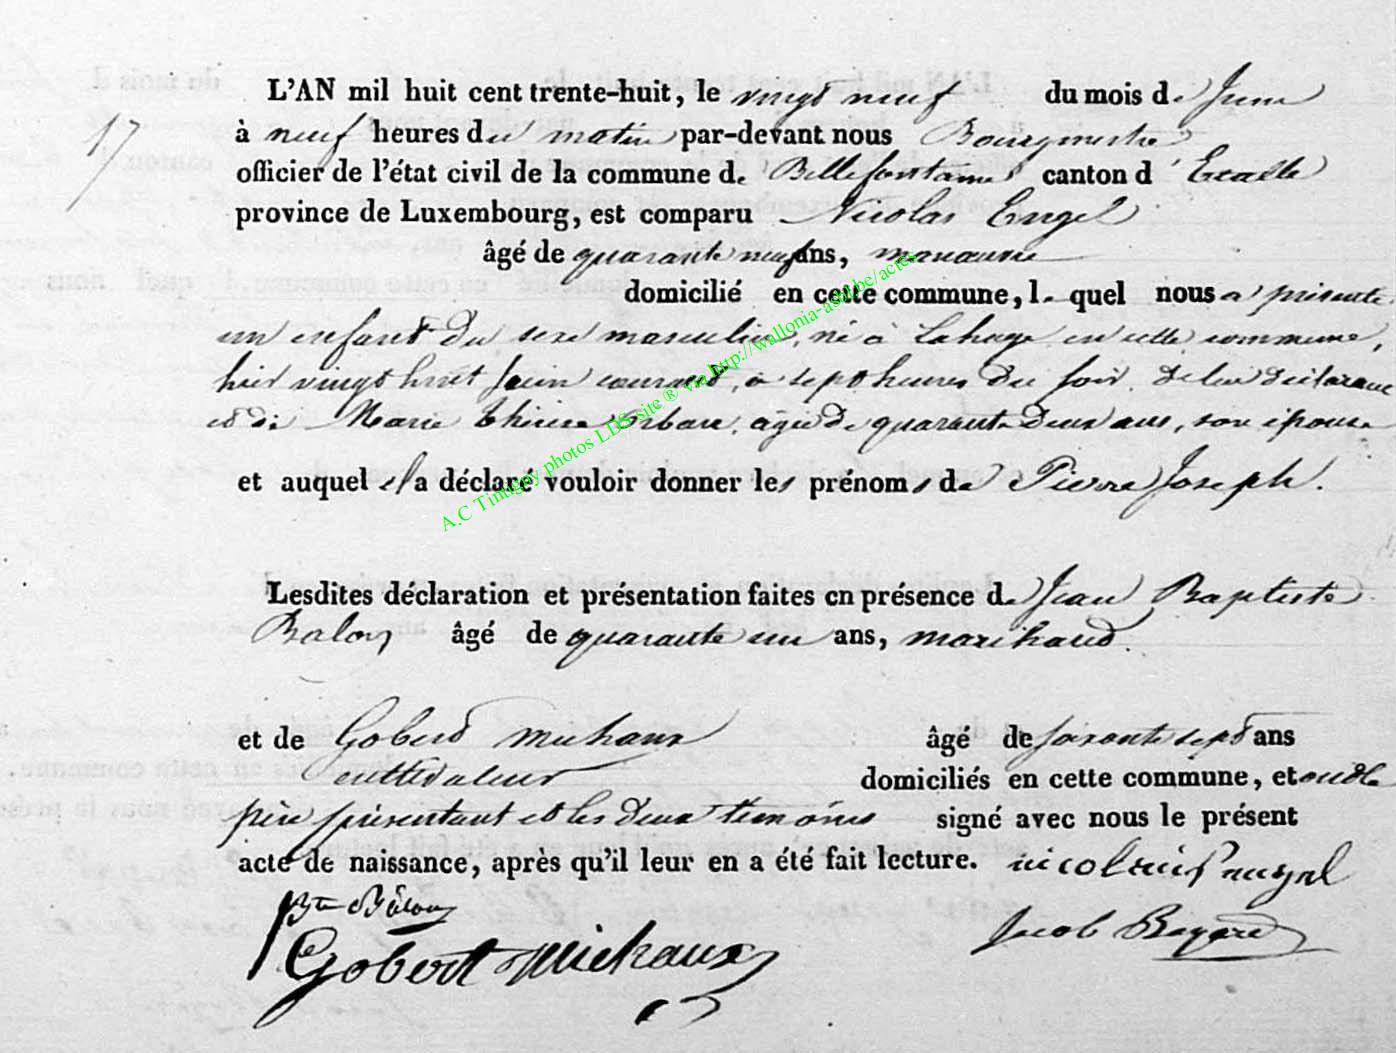 17
L'AN mil huit cent trente-huit, le vingt neuf du mois de Juin
à neuf heures du matin par-devant nous Bourgmestre
officier de l'état civil de la commune de Bellefontaine canton d'Etalle
province de Luxembourg, est comparu Nicolas Engel
âgé de quarante neuf ans, manœuvre
domicilié en cette commune, le quel nous a présenté
un enfant du sexe masculin, né à Lahage en cette commune,
hier vingt huit Juin courant, à sept heures du soir, de lui déclarant
et de Marie Thérèse, agée de quarante deux ans, son épouse
et auquel il a déclaré vouloir donner les prénoms de Pierre Joseph.
Lesdites déclaration et présentation faites en présence de Jean Baptiste
Balon âgé de quarante un ans, maréchaud.
et de Gobert michaux âgé de soixante sept ans
cultivateur domiciliés en cette commune, et
père présentant et les deux témoins signé avec nous le présent
acte de naissance, après qu'il leur en a été fait lecture.
Gobert Michaux
Jacob
A.C Tintigny photos LDS site ® via http://wallonia-asbl.be/actes